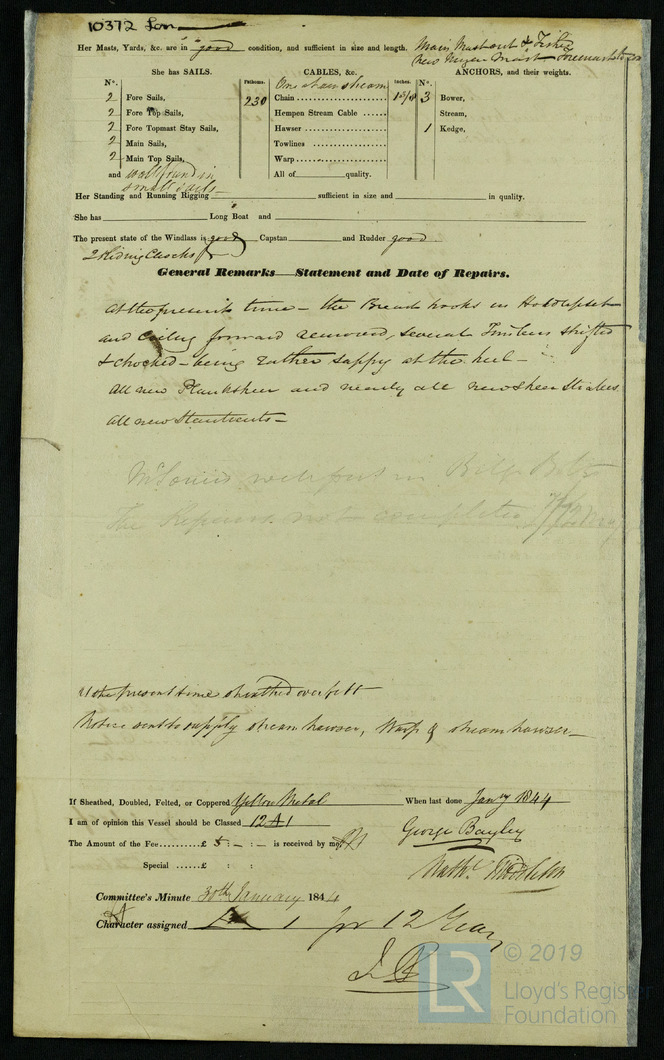 10372 Lon
Her Masts, Yards, &c. are in good condition, and sufficient in size and length. Main Mast out &
New Mizen Mast
She has SAILS.
CABLES, &c.
ANCHORS, and their weights.
N°.
Fathoms.
One chain stream
Inches.
N°.
2 Fore Sails,
230
Chain
1 5/8
3 Bower,
2 Fore Top Sails,
Hempen Stream Cable
Stream,
2 Fore Topmast Stay Sails,
Hawser
1 Kedge,
2 Main Sails,
Towlines
2 Main Top Sails,
Warp
and well found in
All of quality.
small sails
Her Standing and Running Rigging sufficient in size and in quality.
She has Long Boat and
The present state of the Windlass is good Capstan and Rudder good
2 Riding Chocks
General Remarks—Statement and Date of Repairs.
At the present time – the Breast hooks in Hold
and Ceiling forward removed, several Timbers shifted
& chocked – being rather sappy at the heel –
All new Planksheer and nearly all new Sheer Strakes
All new Stanchions –
will put in Bilge Bolts
The Repairs not completed
At the present time sheathed over felt
Notice sent to supply stream hawser, Warp & stream hawser –
If Sheathed, Doubled, Felted, or Coppered Yellow Metal When last done Jany 1844
I am of opinion this Vessel should be Classed 12 A 1
George Bayley
The Amount of the Fee £ 5 : – : – is received by me,
Nathl Middleton
Special £ : :
Committee's Minute 30th January 1844
Character assigned A 1 for 12 Years
© 2019
LR
Lloyd's Register
Foundation